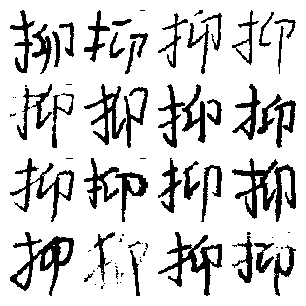 抑抑抑抑
抑抑抑抑
抑抑抑抑
抑抑抑抑